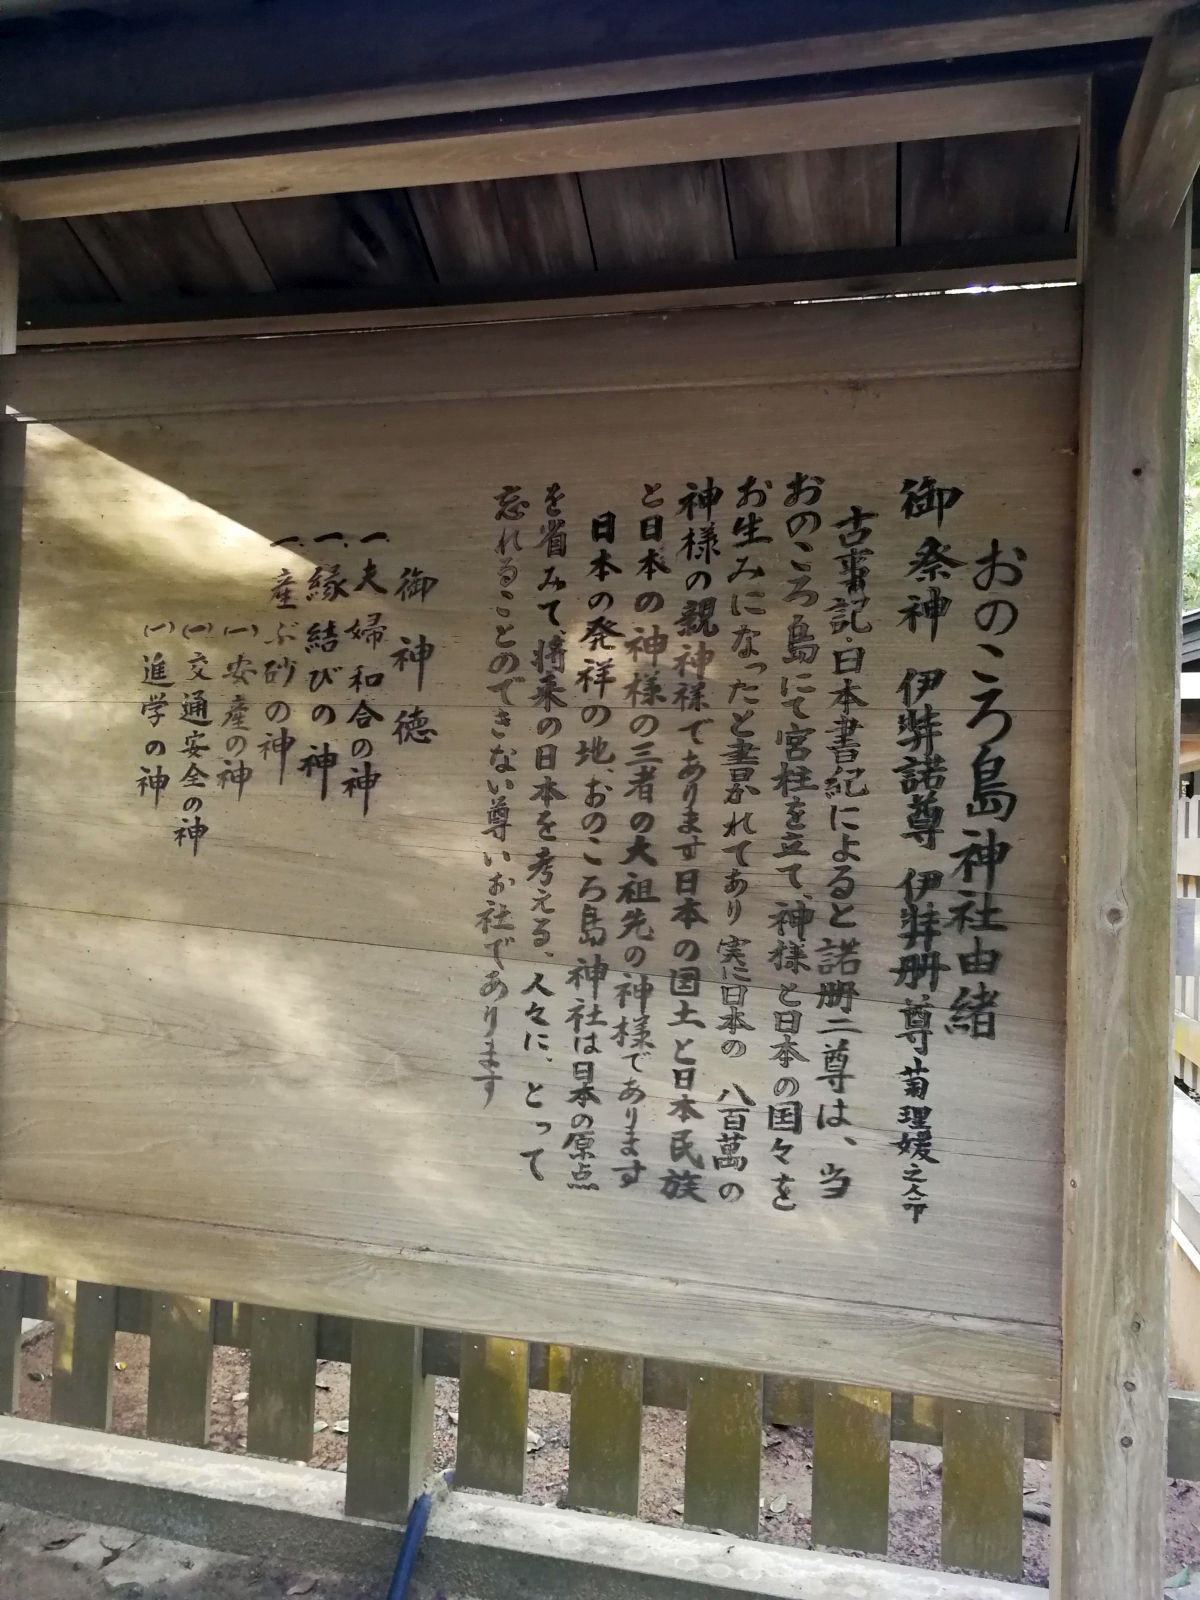 おのころ島神社由緒
御祭神 伊弉諾尊 伊弉册尊 菊理媛之命
古事記・日本書紀によると諾册二尊は、当
おのころ島にて宮柱を立て、神様と日本の国々を
お生みになったと書かれてあり実に日本の八百萬の
神様の親神様であります日本の国土と日本民族
と日本の神様の三者の大祖先の神様であります
日本の発祥の地、おのころ島神社は日本の原点
を省みて、将来の日本を考える、人々に、とって
忘れることのできない尊いお社であります
御神徳
一、夫婦和合の神
一、縁結びの神
一、産ぶ砂の神
(一)安産の神
(一)交通安全の神
(一)進学の神